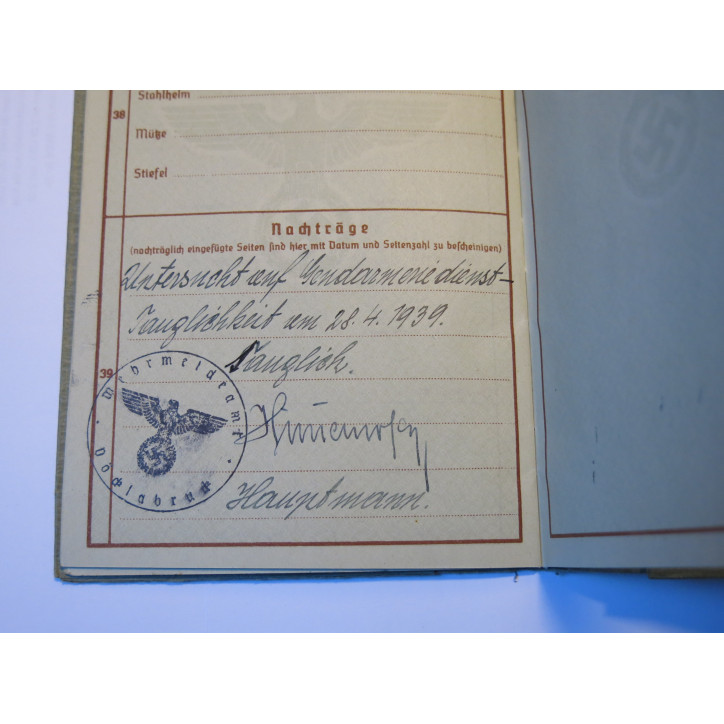 Stahlhelm
38
Mütze
Stiefel
Nachträge
(nachträglich eingefügte Seiten sind hier mit Datum und Seitenzahl zu bescheinigen)
Untersucht auf Gendarmeriedienst-
Tauglichkeit am 28.4.1939.
Tauglich.
39
Wehrmeldeamt
Vöcklabruck
Hauptmann.